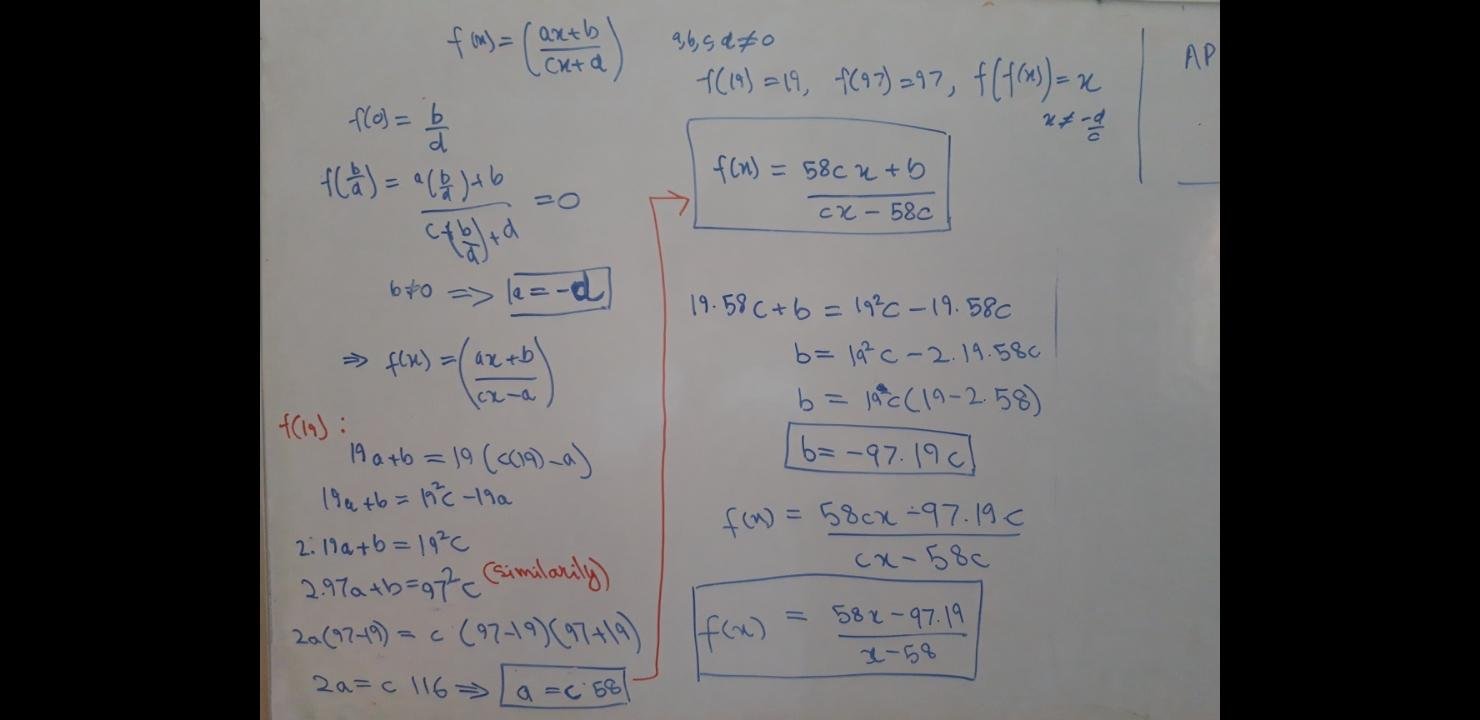 f(x) = (ax+b / cx+d) a,b,c,d ≠ 0
f(19) = 19, f(97) = 97, f(f(x)) = x
x ≠ -d/c
f(0) = b/d
f(b/d) = a(b/d)+b / c(b/d)+d = 0
b≠0 => a = -d
⇒ f(x) = (ax+b / cx-a)
f(19) :
19a+b = 19 (c(19)-a)
19a+b = 19²c -19a
2.19a+b = 19²c
2.97a+b = 97²c (similarily)
2a(97-19) = c (97-19)(97+19)
2a = c 116 => a = c 58
f(x) = 58cx + b / cx - 58c
19.58c + b = 19²c - 19.58c
b = 19²c - 2.19.58c
b = 19c(19-2.58)
b = -97.19c
f(x) = 58cx - 97.19c / cx - 58c
f(x) = 58x - 97.19 / x - 58
AP